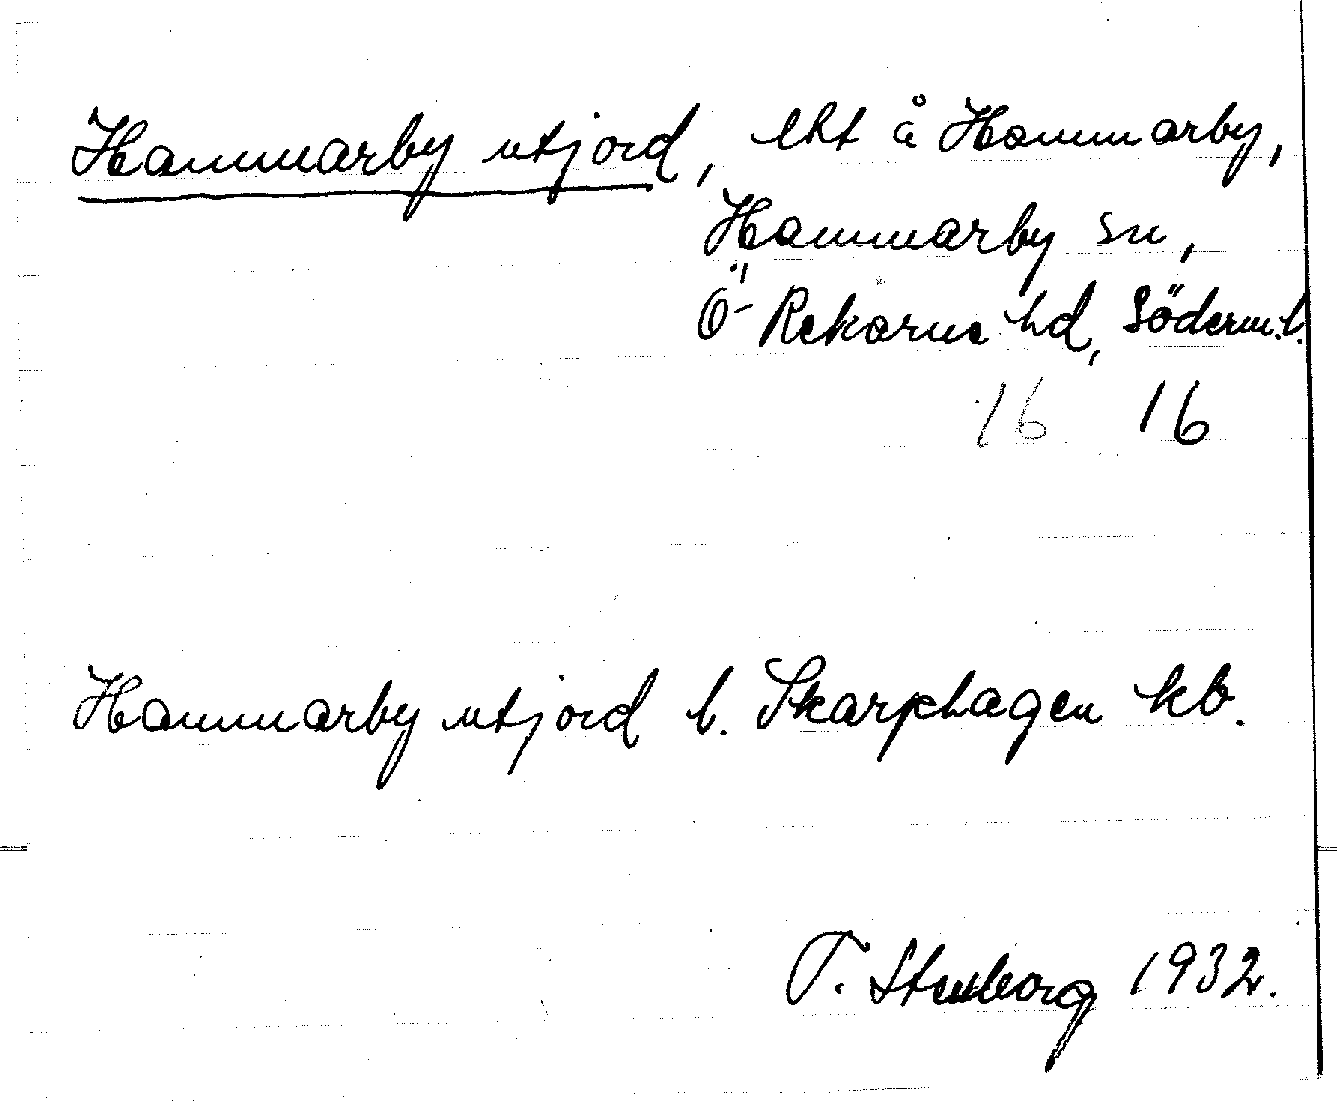 Hammarby utjord, lht å Hammarby,
Hammarby sn,
Ö- Rekarne hd, Söderm. l.
16 16
Hammarby utjord l. Skarphagen kb.
T. Stenborg 1932.